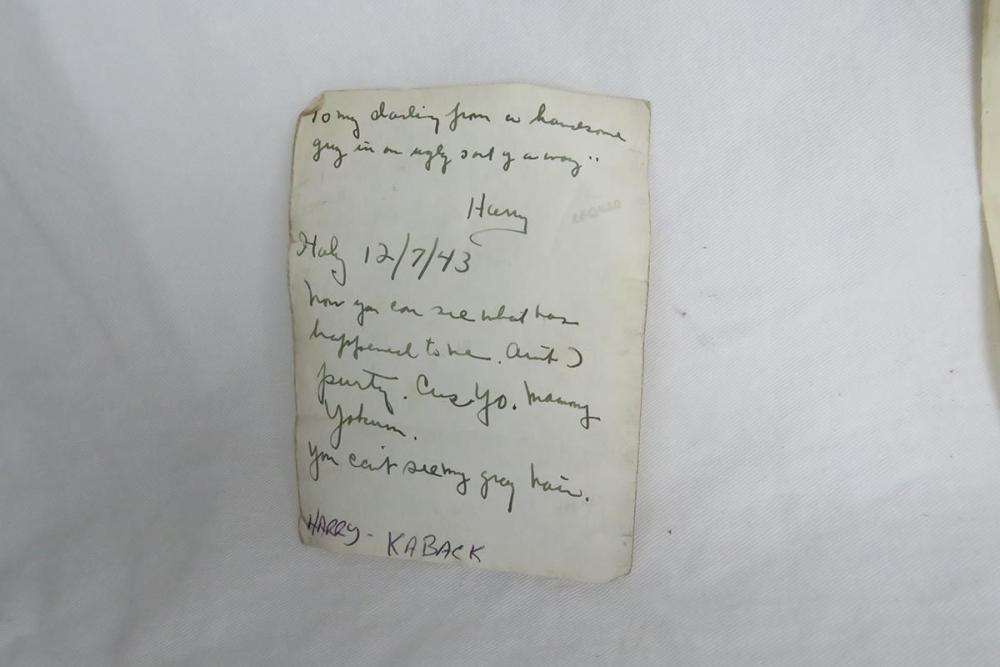 To my darling from a handsome
guy in an ugly sort of a way..
Harry
Italy 12/7/43
Now you can see what has
happened to me. Ain't I
purty. Cus Yo. Mammy
Yokum.
You can't see my gray hair.
HARRY - KABACK